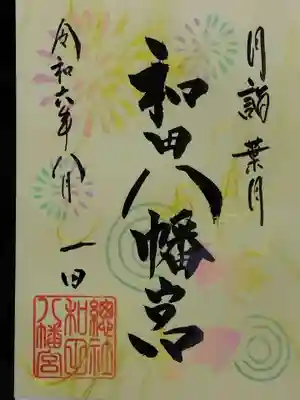 月詣 葉月
和田八幡宮
令和六年八月一日
總社
和田
八幡宮